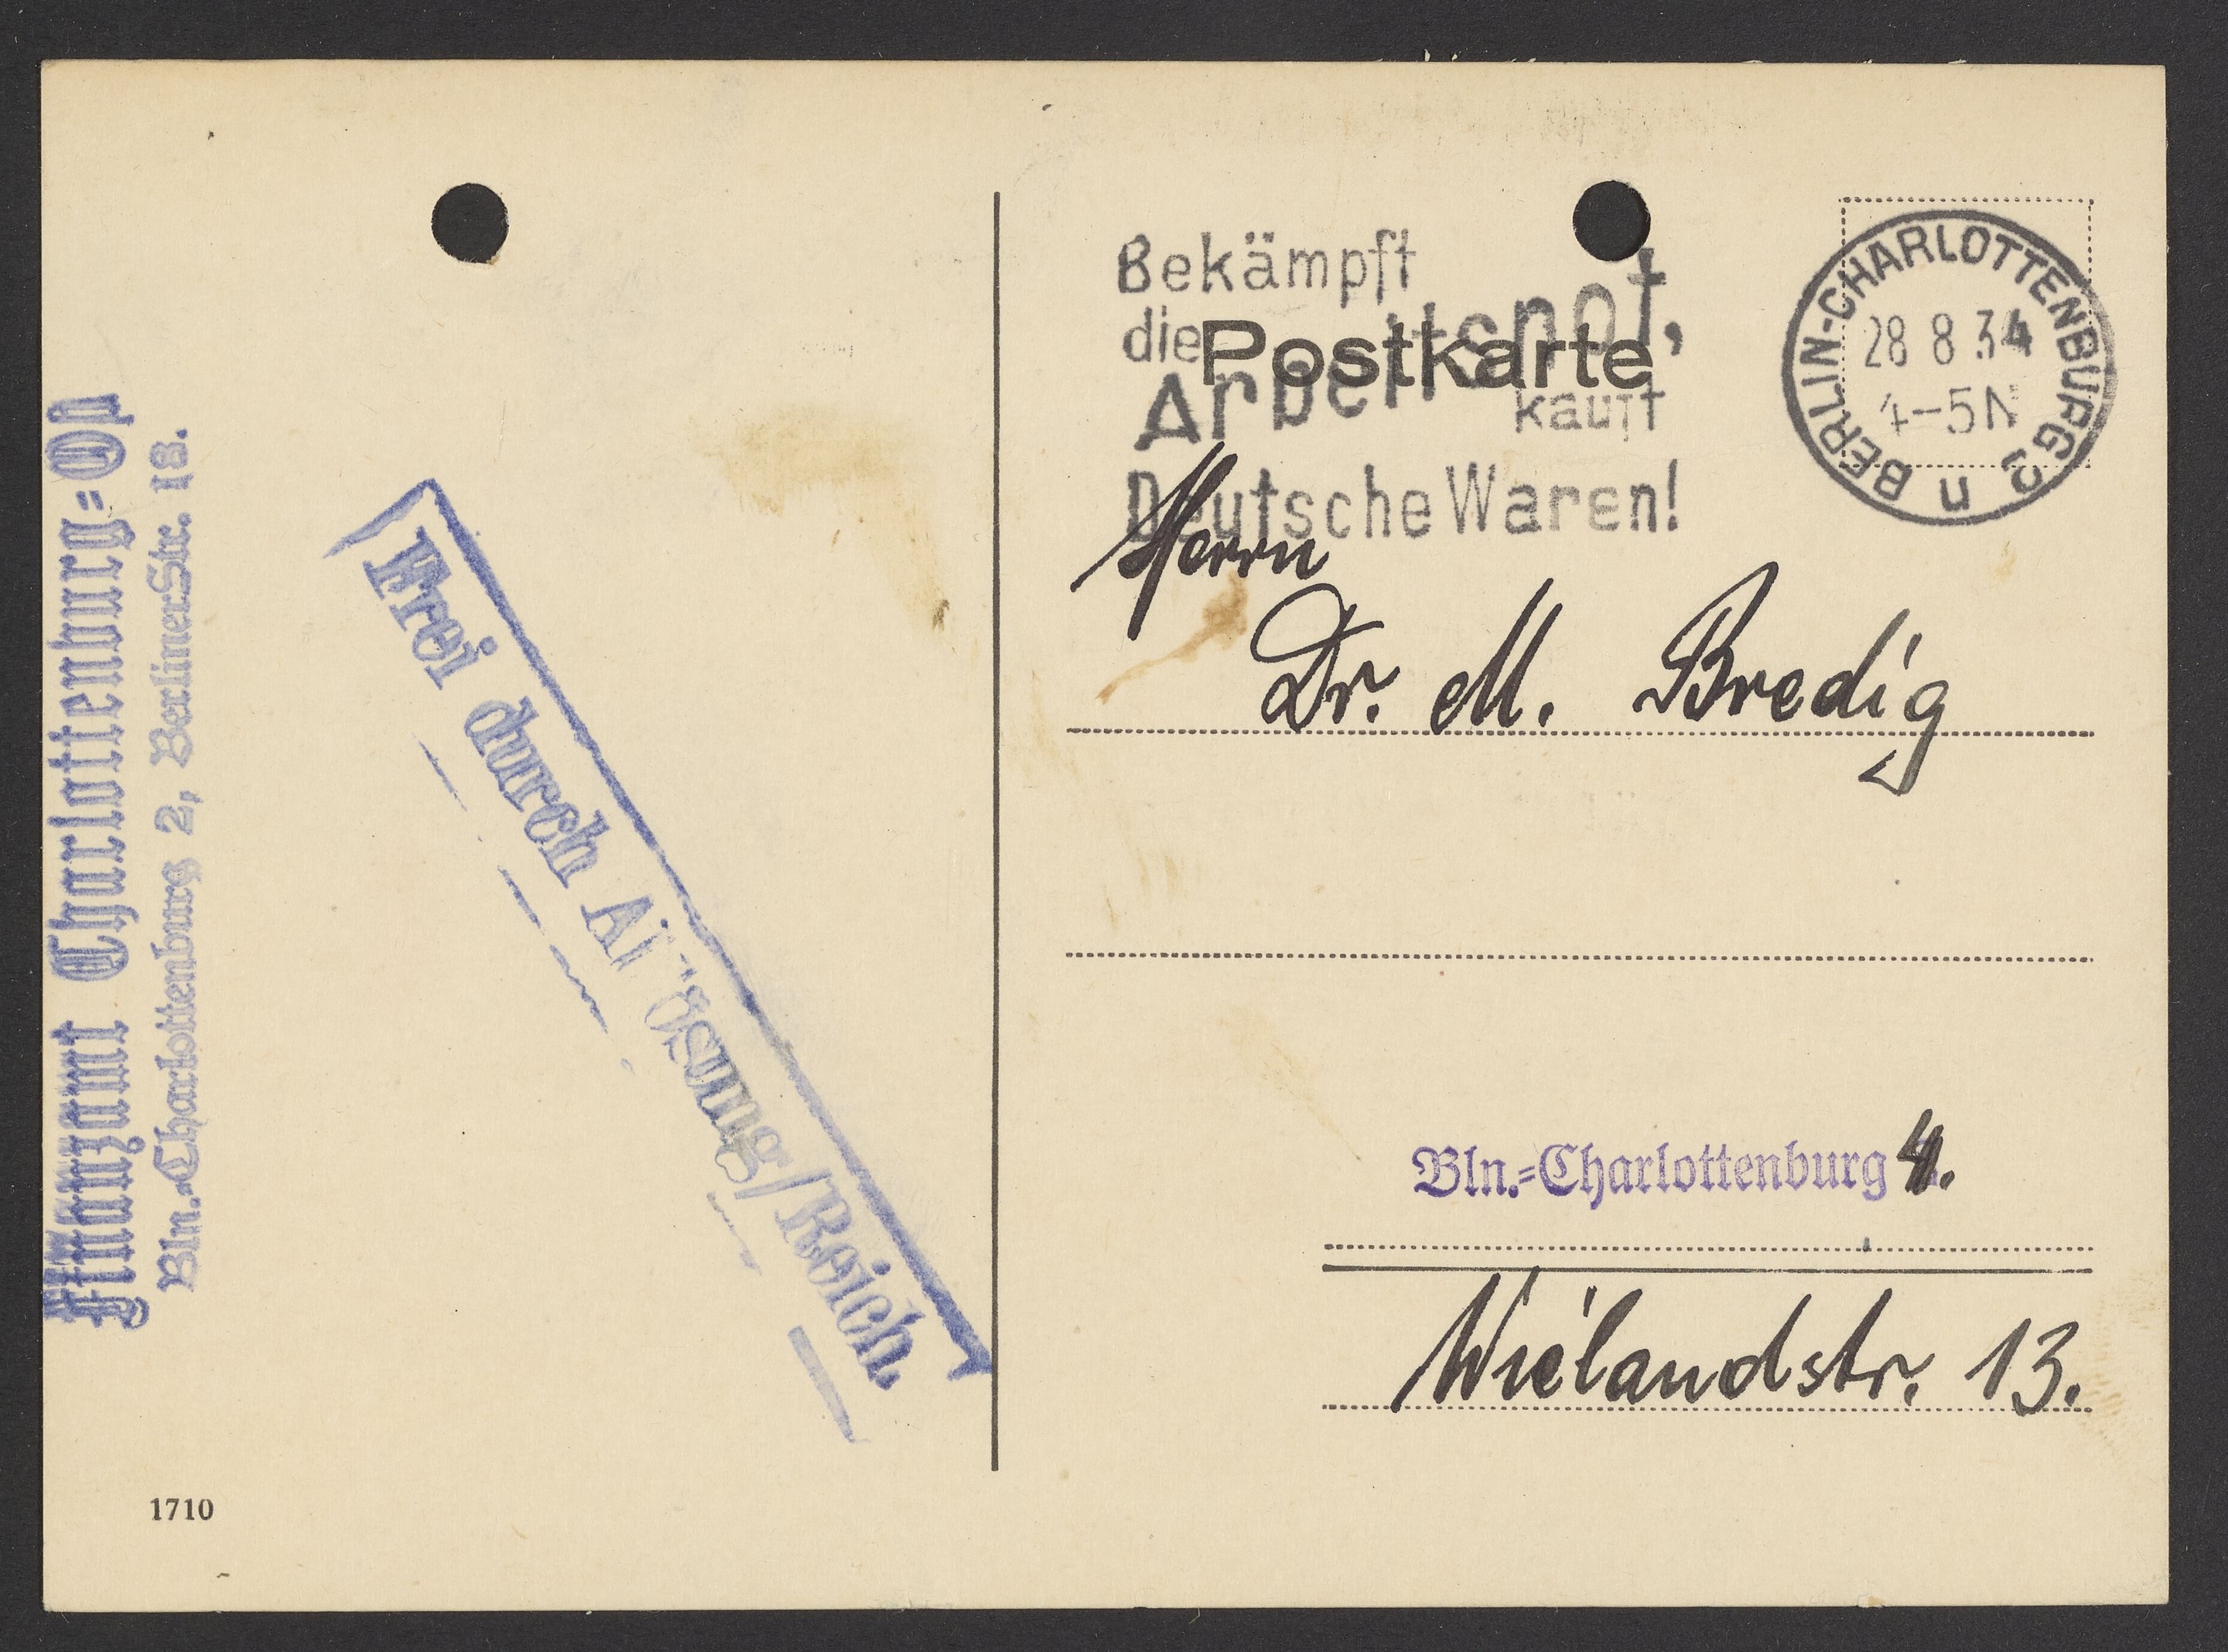 Finanzamt Charlottenburg=Ost
Bln.=Charlottenburg 2, Berliner Str. 18.
Frei durch Ablösung/Reich.
1710
Bekämpft
die Arbeitsnot,
kauft
Deutsche Waren!
Postkarte
BERLIN-CHARLOTTENBURG 2
28 8 34
4-5N
u
Herrn
Dr. M. Bredig
Bln.=Charlottenburg 4.
Wielandstr. 13.